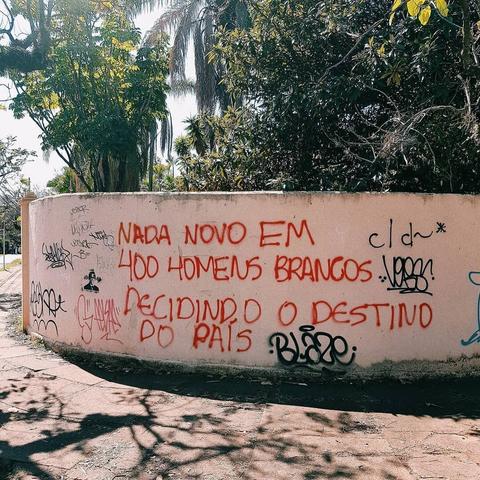 NADA NOVO EM
400 HOMENS BRANCOS
DECIDINDO O DESTINO
DO PAÍS
BLAZE